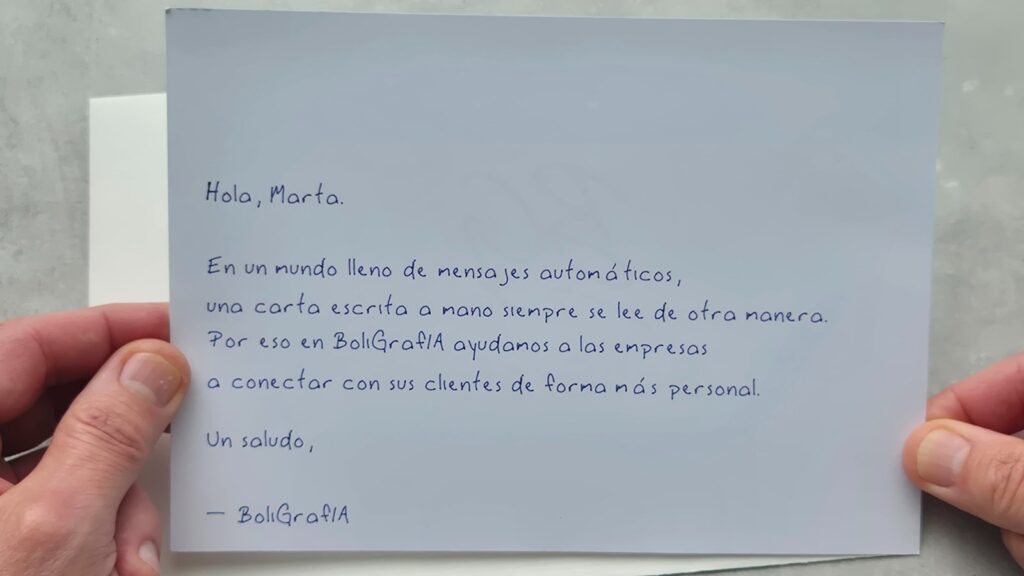 Hola, Marta.
En un mundo lleno de mensajes automáticos,
una carta escrita a mano siempre se lee de otra manera.
Por eso en BoliGrafIA ayudamos a las empresas
a conectar con sus clientes de forma más personal.
Un saludo,
— BoliGrafIA